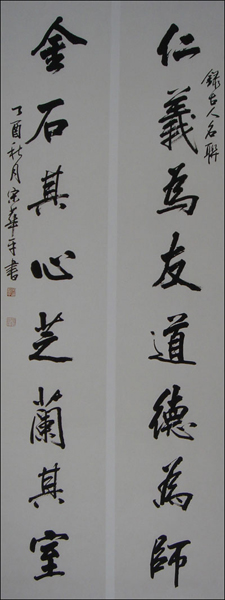 錄古人名聯
仁義為友道德為師
金石其心芝蘭其室
丁酉秋月宗華平書